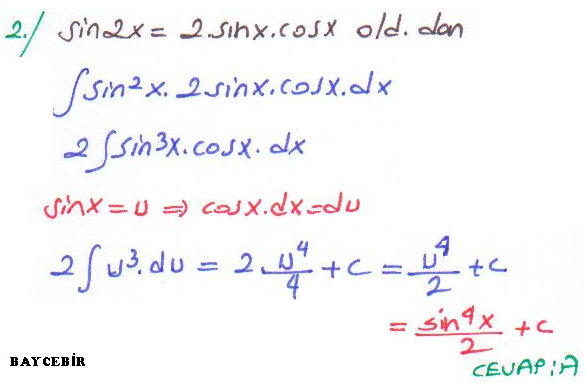 2./ sin2x = 2.sinx.cosx old. dan
∫sin²x. 2sinx.cosx.dx
2∫sin³x.cosx.dx
sinx = u ⇒ cosx.dx=du
2∫u³.du = 2.u⁴/4 + c = u⁴/2 + c
= sin⁴x/2 + c
BAYCEBİR
CEVAP:A